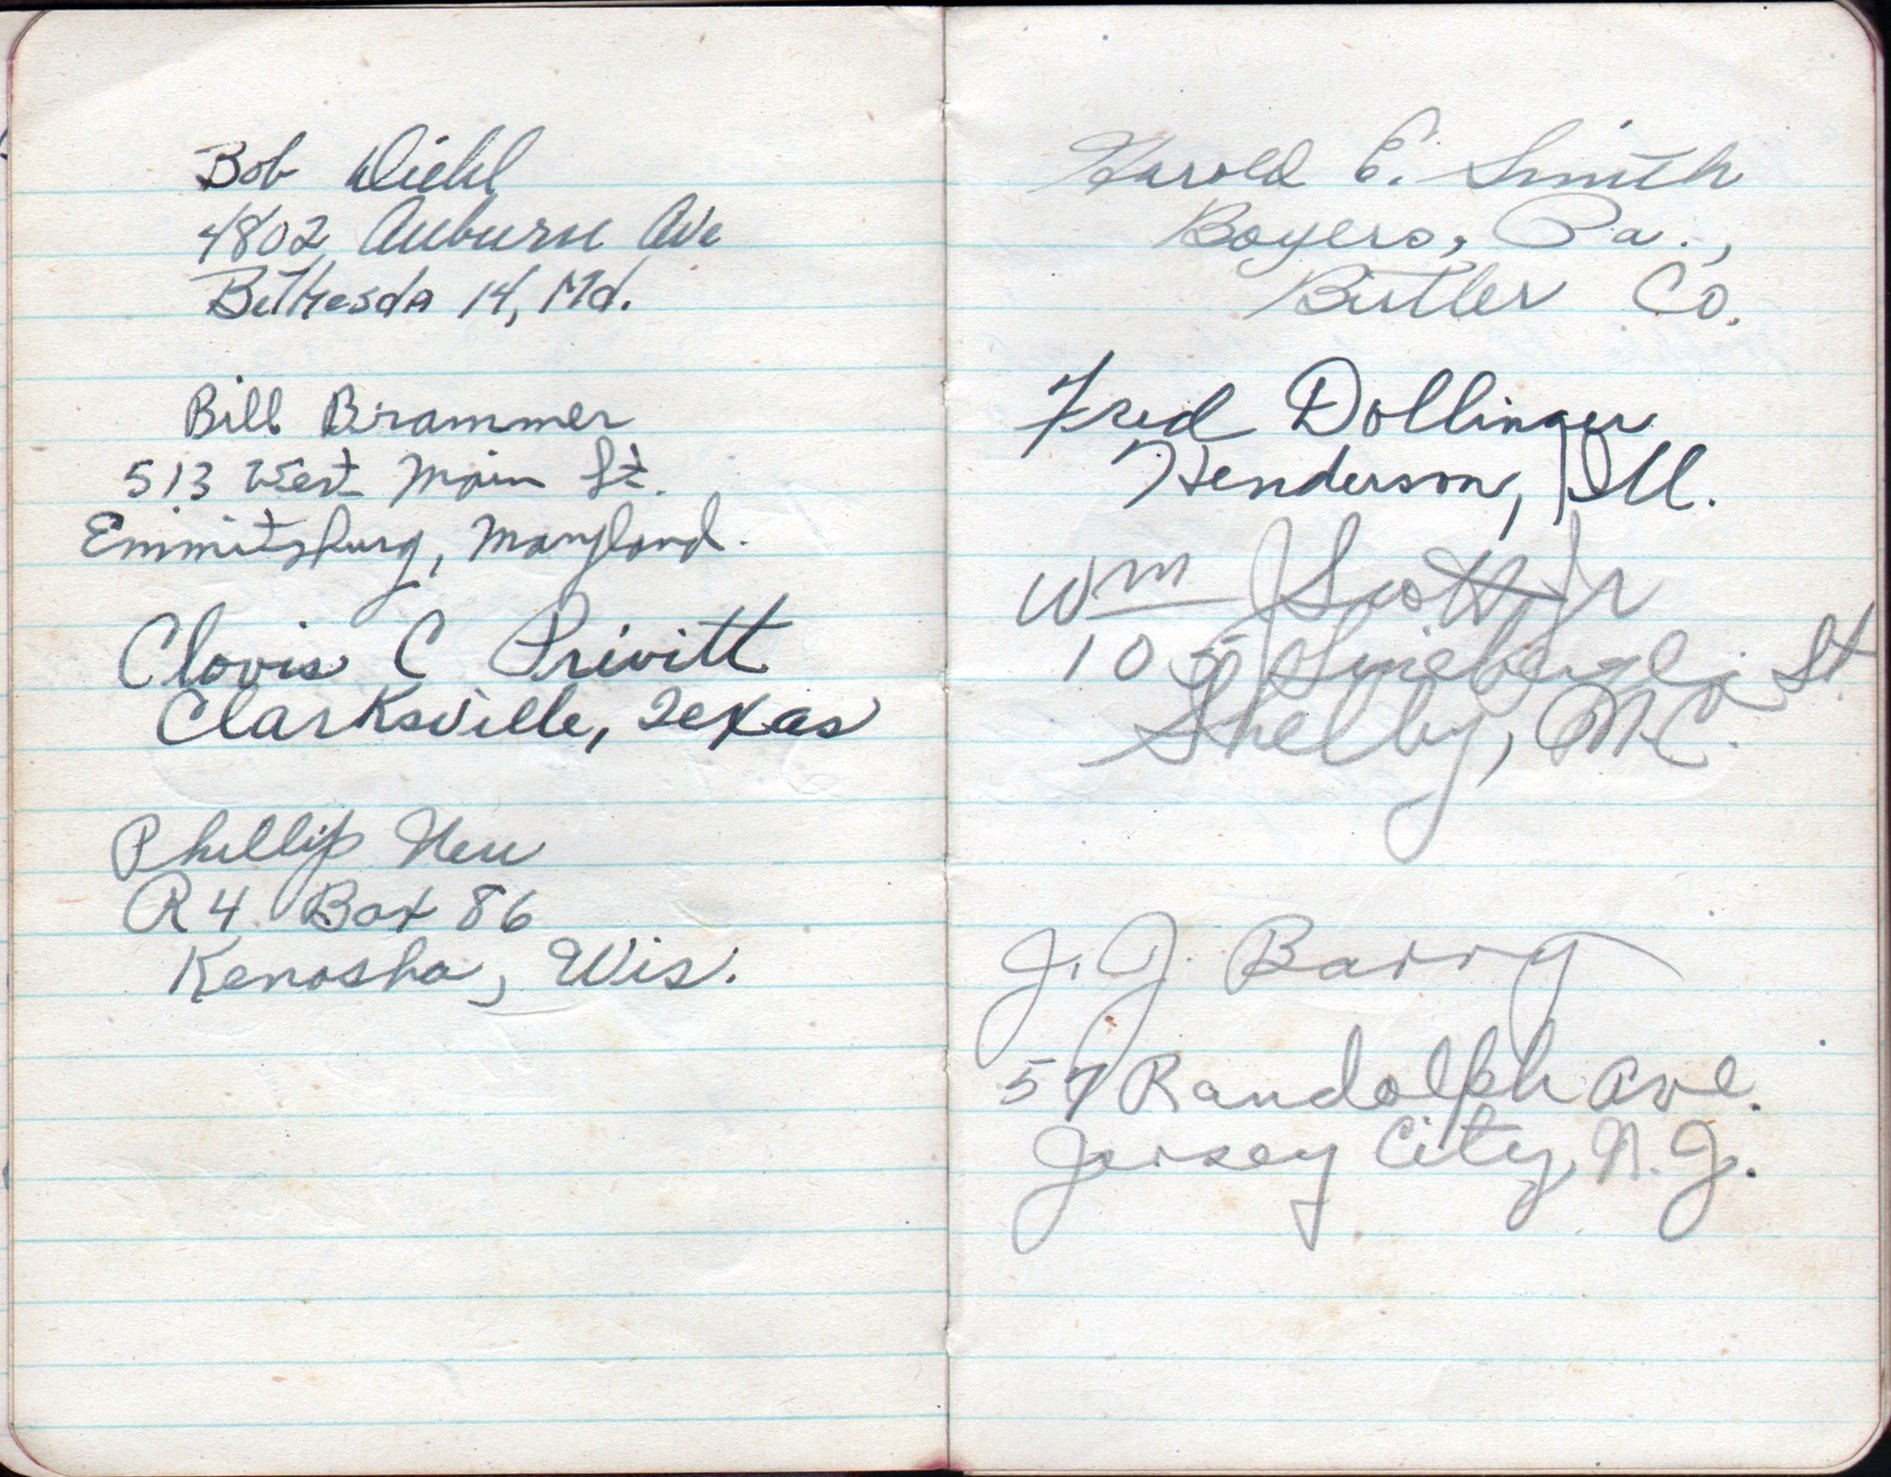 Bob Diehl
4802 Auburn Ave
Bethesda 14, Md.
Bill Brammer
513 West Main St.
Emmitsburg, Maryland.
Clovis C Privitt
Clarksville, Texas
Phillip Neu
R 4 Box 86
Kenosha, Wis.
Harold E. Smith
Boyers, Pa.,
Butler Co.
Fred Dollinger
Henderson, Ill.
Wm J Scott Jr
105 St
Shelby, N.C.
J. J. Barry
57 Randolph Ave.
Jersey City, N.J.